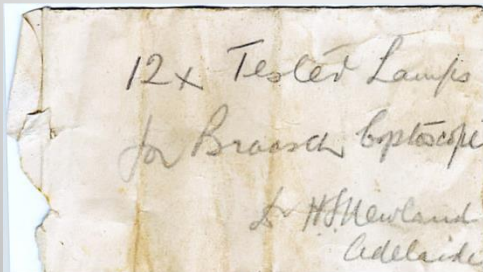 12x Tested Lamps
for Braasch Cystoscope
Dr H S Newland
Adelaide